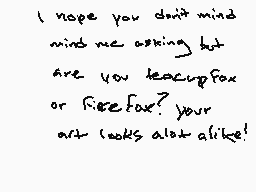 I hope you don't mind
mind me asking but
are you teacupfox
or firefox? your
art looks alot alike!